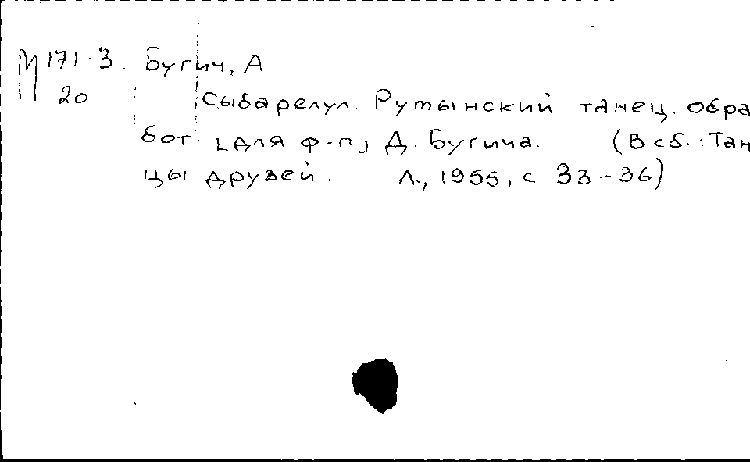 М 171-3. Бугич, А
20 Сыбарелул. Румынский танец. Обра
бот. [для ф-п] Д. Бугича. (В сб.: Тан
цы друзей. Л., 1955, с 33-36)